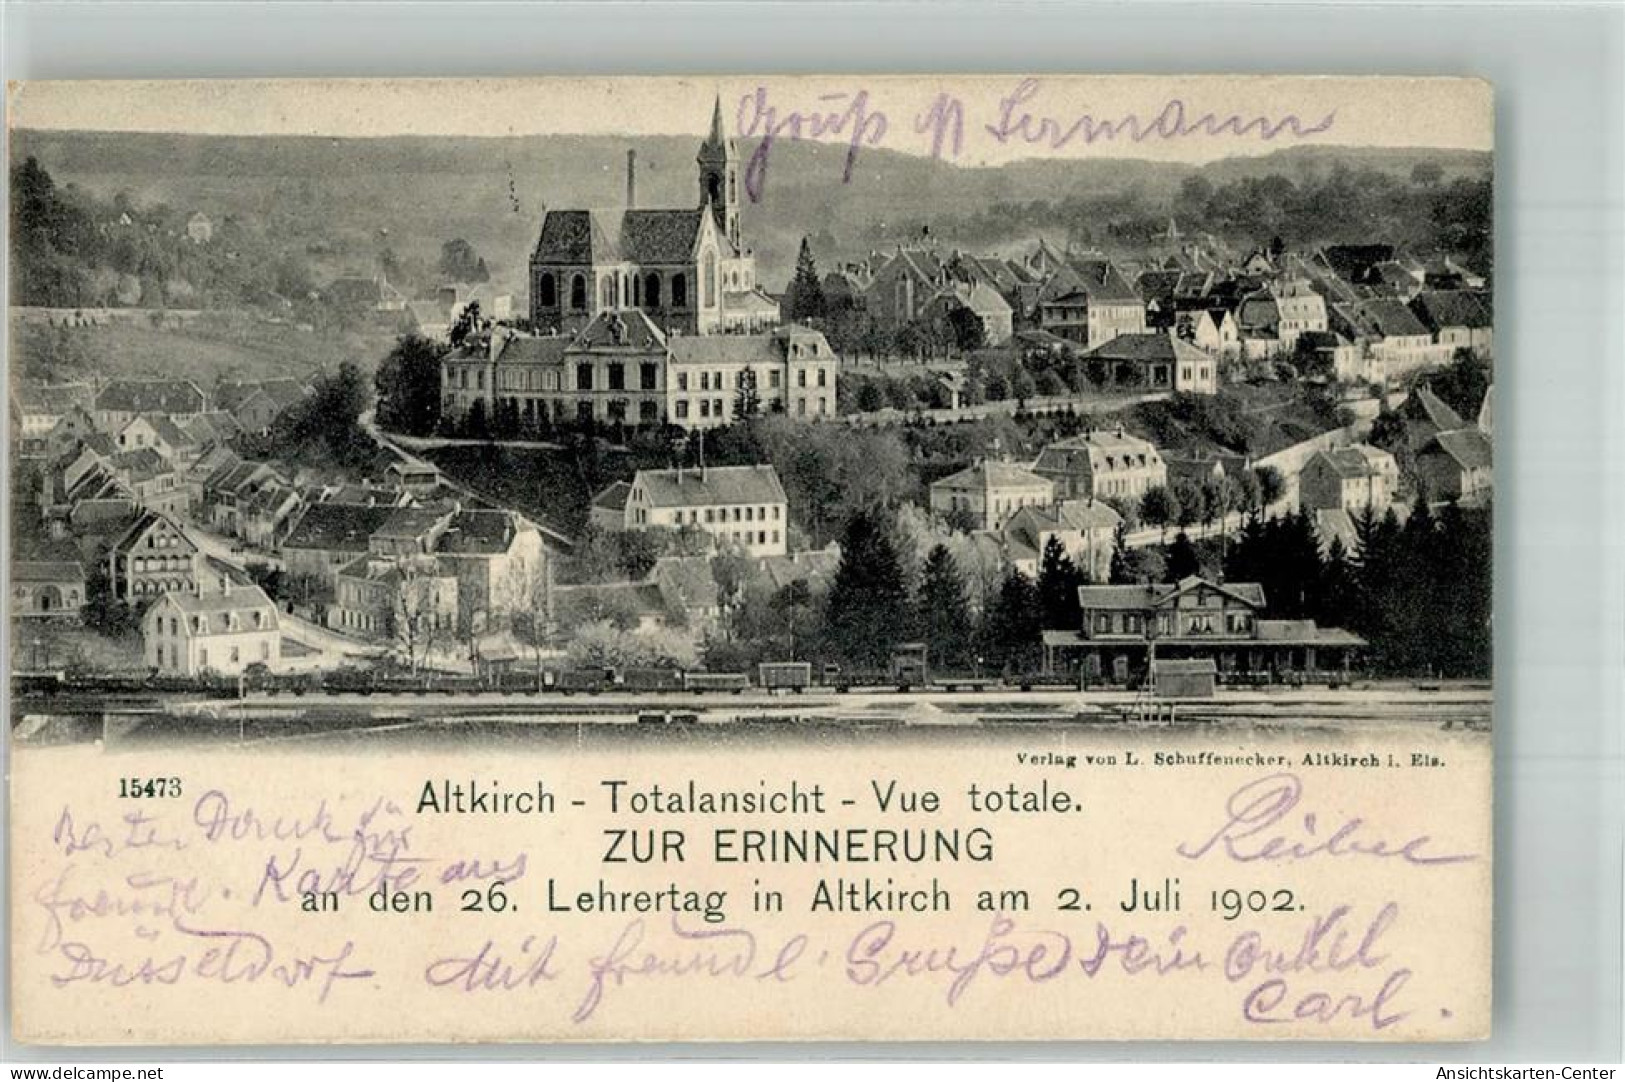 Gruß
Verlag von L. Schuffenecker, Altkirch i. Els.
15473
Altkirch - Totalansicht - Vue totale.
ZUR ERINNERUNG
an den 26. Lehrertag in Altkirch am 2. Juli 1902.
Bester Dank für
freundl. Karte aus
Düsseldorf. Mit freundl. Grüße Dein Onkel
Carl.
delcampe.net
Ansichtskarten-Center